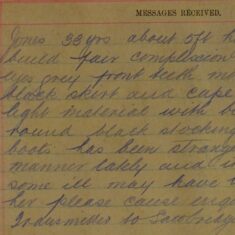 MESSAGES RECEIVED.
Jones 33 yrs about 5ft h
build fair complexion
eyes grey front teeth m
black skirt and cape
light material with b
round black stocking
boots has been strange
manner lately and i
some ill may have
her please cause enq
Transmitted to